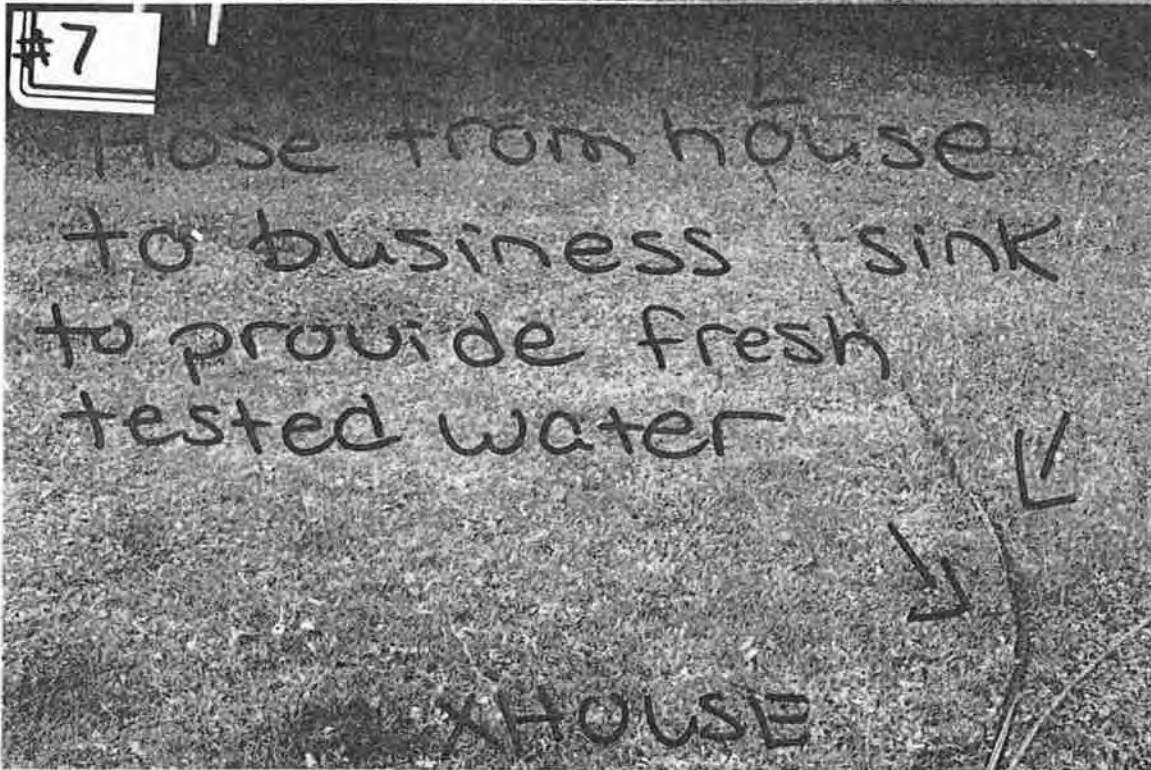 #7
Hose from house
to business sink
to provide fresh
tested water
XHOUSE